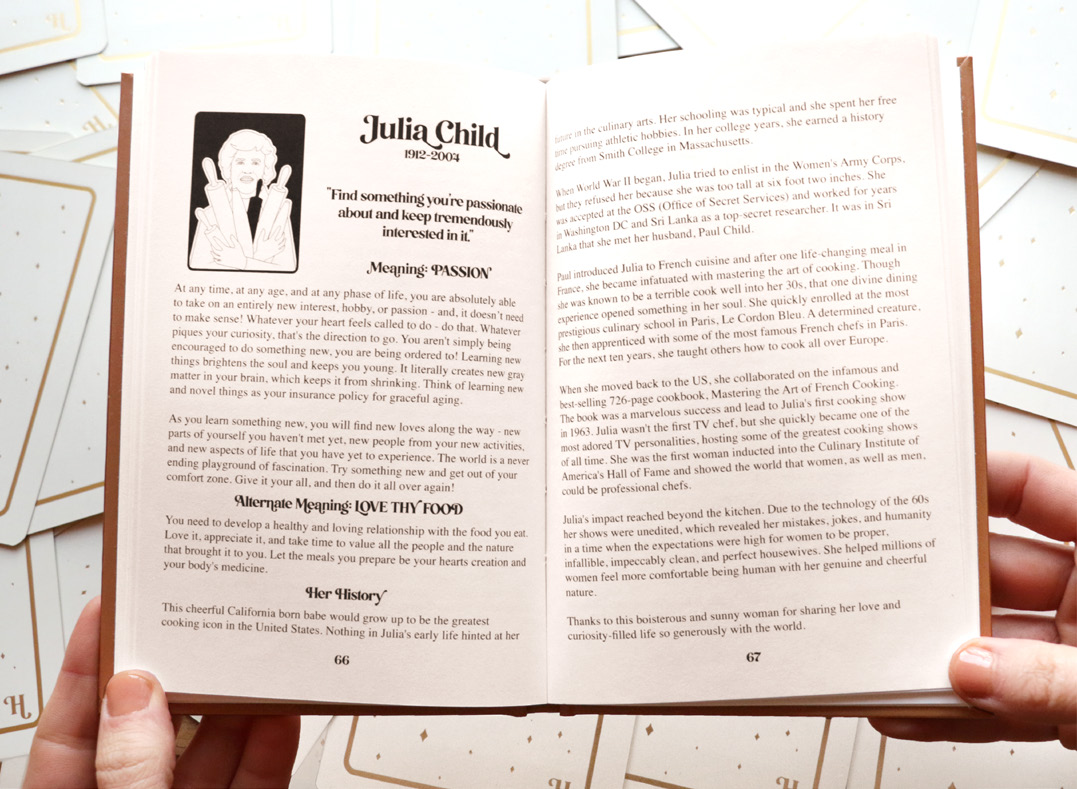 Julia Child
1912-2004
"Find something you're passionate
about and keep tremendously
interested in it."
Meaning: PASSION
At any time, at any age, and at any phase of life, you are absolutely able
to take on an entirely new interest, hobby, or passion - and, it doesn't need
to make sense! Whatever your heart feels called to do - do that. Whatever
piques your curiosity, that's the direction to go. You aren't simply being
encouraged to do something new, you are being ordered to! Learning new
things brightens the soul and keeps you young. It literally creates new gray
matter in your brain, which keeps it from shrinking. Think of learning new
and novel things as your insurance policy for graceful aging.
As you learn something new, you will find new loves along the way - new
parts of yourself you haven't met yet, new people from your new activities,
and new aspects of life that you have yet to experience. The world is a never
ending playground of fascination. Try something new and get out of your
comfort zone. Give it your all, and then do it all over again!
Alternate Meaning: LOVE THY FOOD
You need to develop a healthy and loving relationship with the food you eat.
Love it, appreciate it, and take time to value all the people and the nature
that brought it to you. Let the meals you prepare be your hearts creation and
your body's medicine.
Her History
This cheerful California born babe would grow up to be the greatest
cooking icon in the United States. Nothing in Julia's early life hinted at her
66
future in the culinary arts. Her schooling was typical and she spent her free
time pursuing athletic hobbies. In her college years, she earned a history
degree from Smith College in Massachusetts.
When World War II began, Julia tried to enlist in the Women's Army Corps,
but they refused her because she was too tall at six foot two inches. She
was accepted at the OSS (Office of Secret Services) and worked for years
in Washington DC and Sri Lanka as a top-secret researcher. It was in Sri
Lanka that she met her husband, Paul Child.
Paul introduced Julia to French cuisine and after one life-changing meal in
France, she became infatuated with mastering the art of cooking. Though
she was known to be a terrible cook well into her 30s, that one divine dining
experience opened something in her soul. She quickly enrolled at the most
prestigious culinary school in Paris, Le Cordon Bleu. A determined creature,
she then apprenticed with some of the most famous French chefs in Paris.
For the next ten years, she taught others how to cook all over Europe.
When she moved back to the US, she collaborated on the infamous and
best-selling 726-page cookbook, Mastering the Art of French Cooking.
The book was a marvelous success and lead to Julia's first cooking show
in 1963. Julia wasn't the first TV chef, but she quickly became one of the
most adored TV personalities, hosting some of the greatest cooking shows
of all time. She was the first woman inducted into the Culinary Institute of
America's Hall of Fame and showed the world that women, as well as men,
could be professional chefs.
Julia's impact reached beyond the kitchen. Due to the technology of the 60s
her shows were unedited, which revealed her mistakes, jokes, and humanity
in a time when the expectations were high for women to be proper,
infallible, impeccably clean, and perfect housewives. She helped millions of
women feel more comfortable being human with her genuine and cheerful
nature.
Thanks to this boisterous and sunny woman for sharing her love and
curiosity-filled life so generously with the world.
67
H